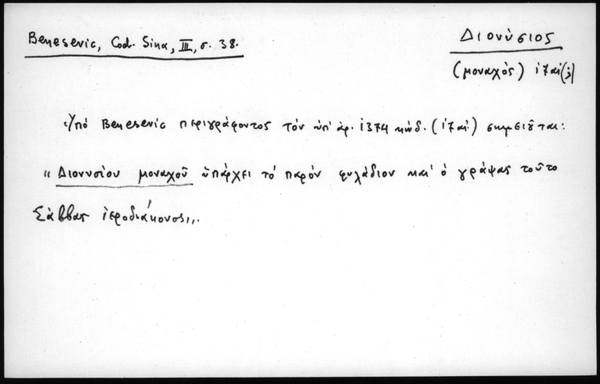 Benesevic, Cod. Sina, III, σ. 38.
Διονύσιος
(μοναχός) ιζ΄ αἰ(;)
Ὑπό Benesevic περιγράφοντος τόν ὑπ' ἀρ. 1374 κώδ. (ιζ΄ αἰ.) σημειοῦται:
"Διονυσίου μοναχοῦ ὑπάρχει τό παρόν φυλάδιον και' ὁ γράψας τοῦτο
Σάββας ἱεροδιάκονος".